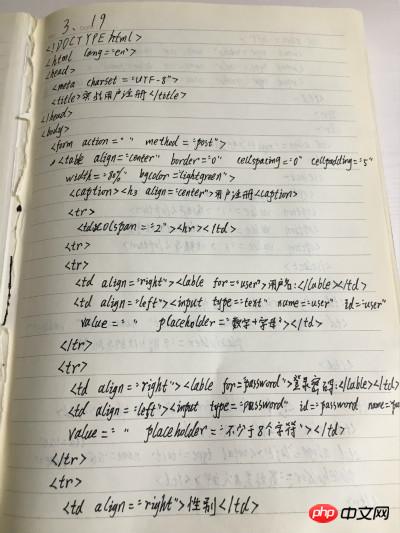 3.19
<!DOCTYPE html>
<html lang="en">
<head>
<meta charset="UTF-8">
<title>实战用户注册</title>
</head>
<body>
<form action=" " method="post">
<table align="center" border="0" cellspacing="0" cellpadding="5"
width="80%" bgcolor="lightgreen">
<caption><h3 align="center">用户注册<caption>
<tr>
<td colspan="2"><hr></td>
<tr>
<tr>
<td align="right"><lable for="user">用户名:</lable></td>
<td align="left"><input type="text" name="user" id="user"
value=" " placeholder="数字+字母"></td>
</tr>
<tr>
<td align="right"><lable for="password">登录密码:</lable></td>
<td align="left"><input type="password" id="password" name="pa
value=" " placeholder="不少于8个字符"></td>
</tr>
<tr>
<td align="right">性别</td>
php中文网